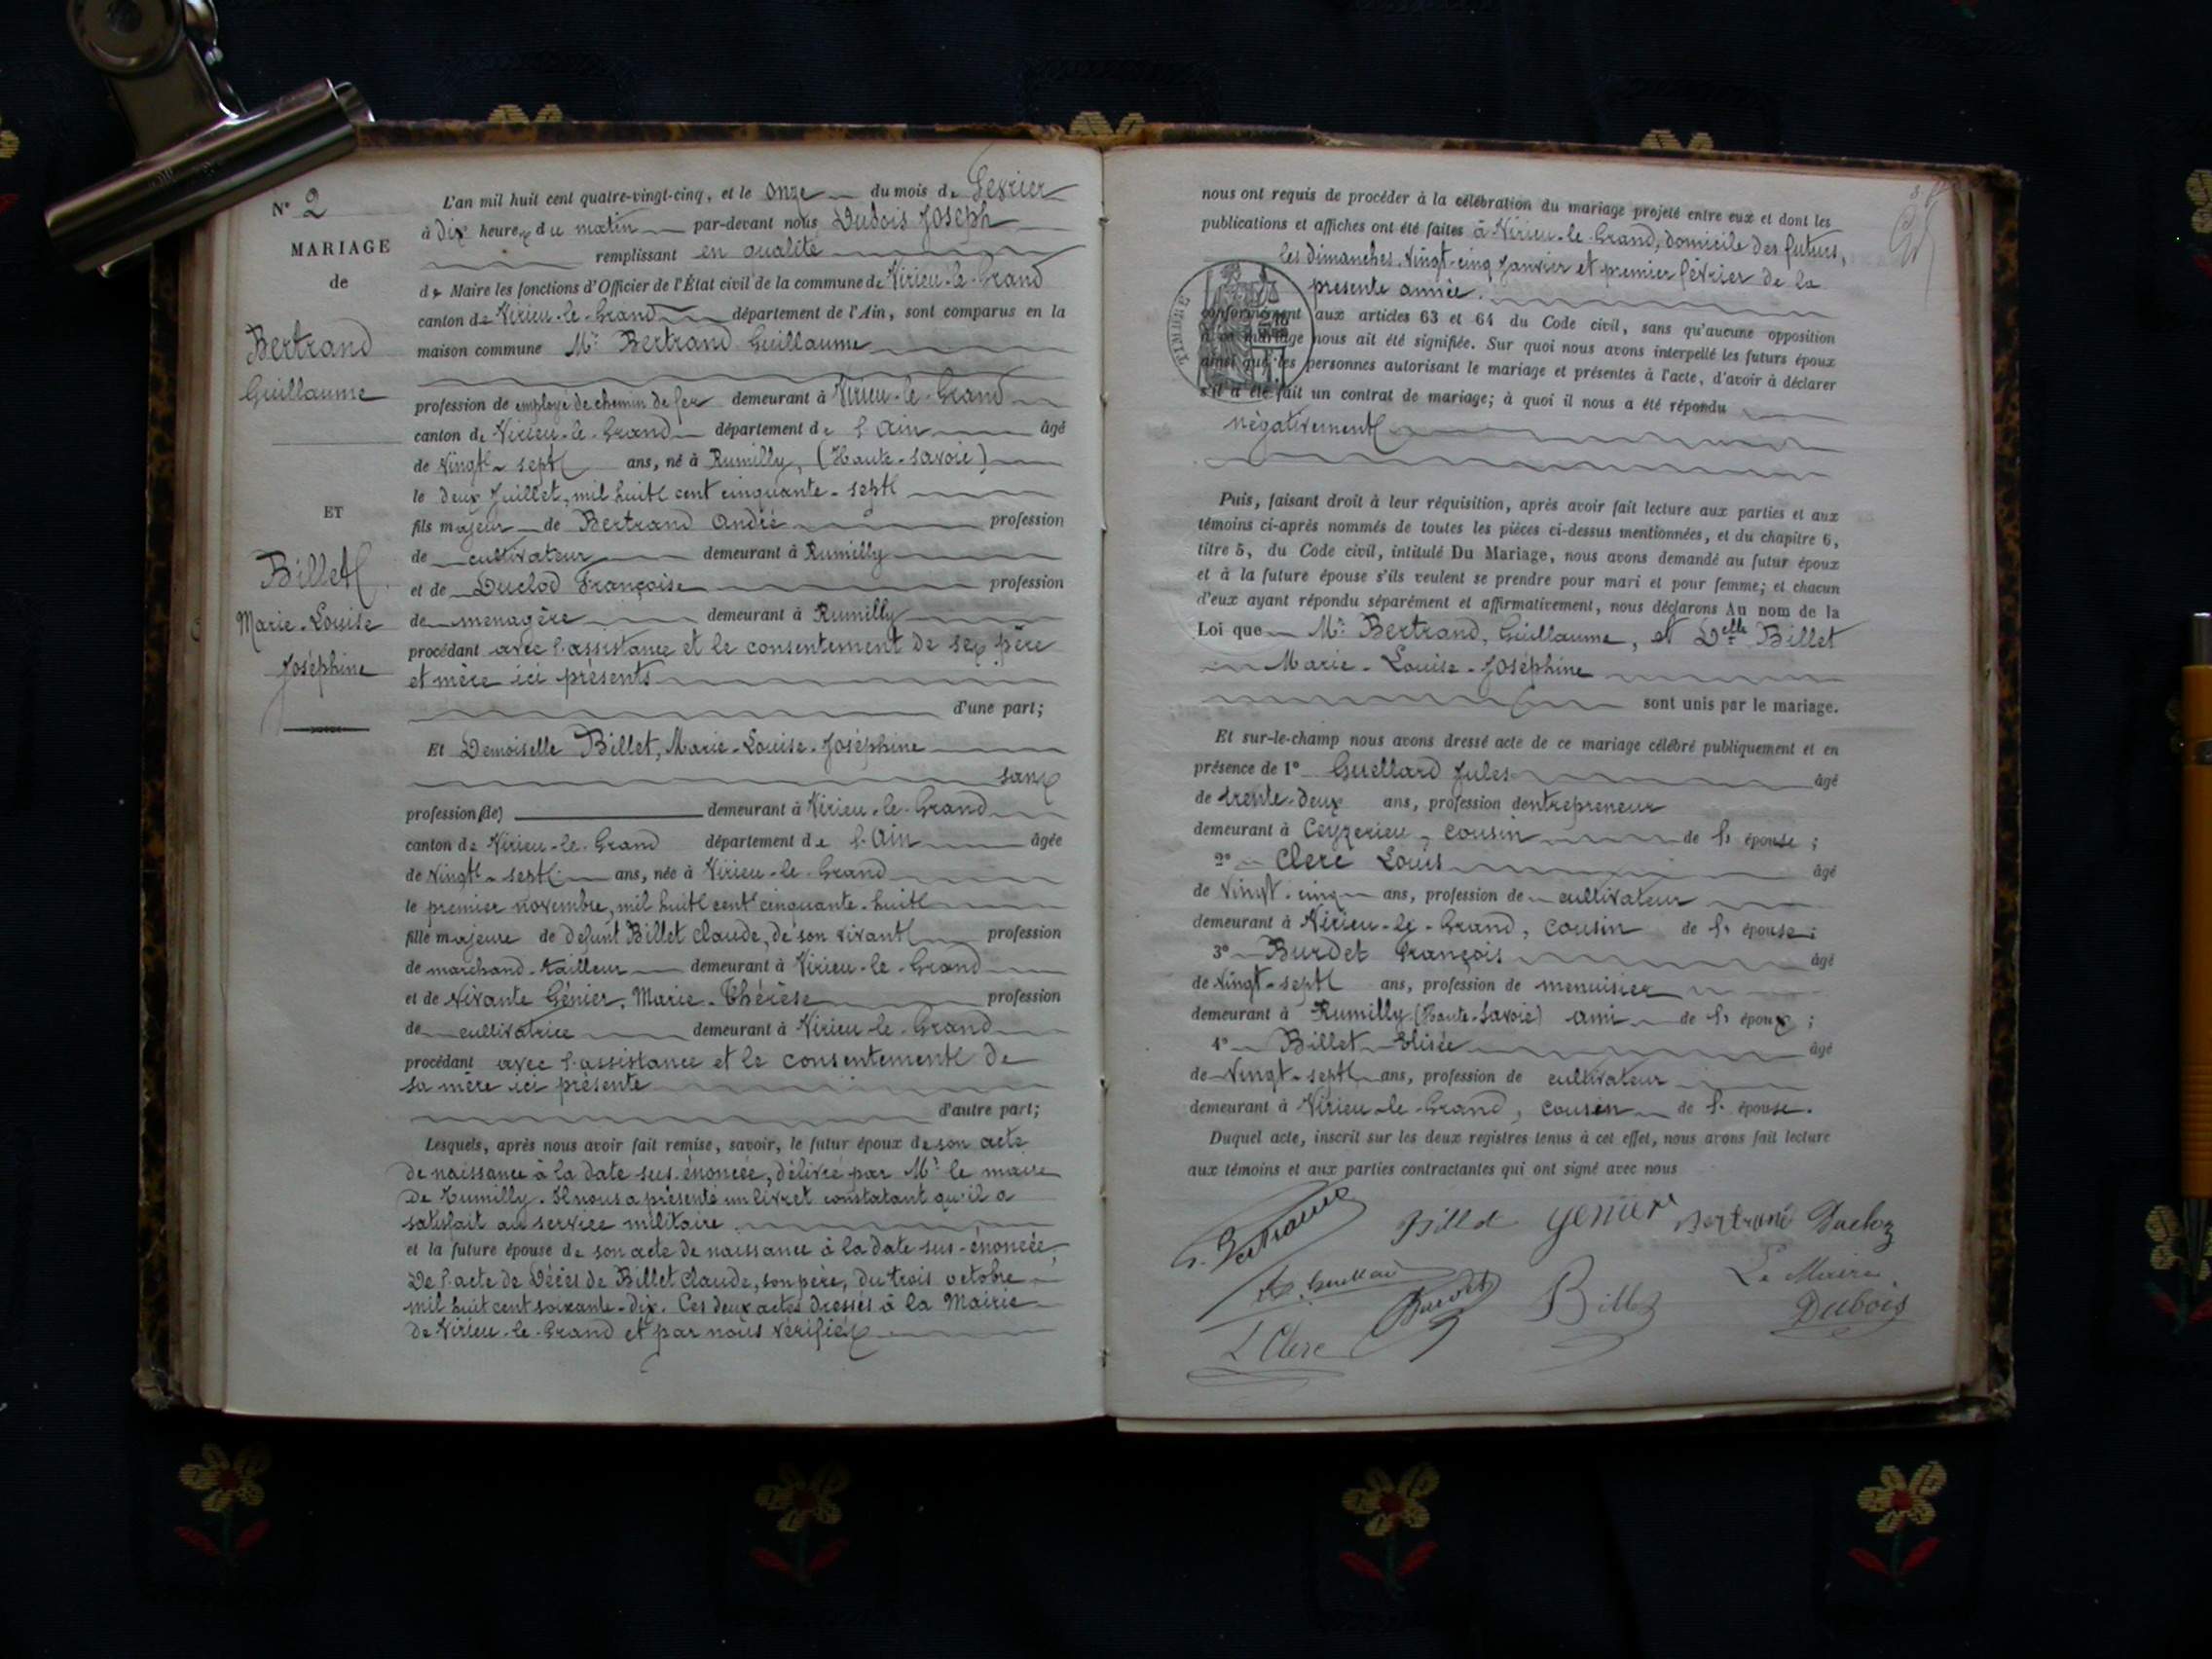 N° 2
MARIAGE
de
Bertrand
Guillaume
ET
Billet
Marie-Louise
Joséphine
L'an mil huit cent quatre-vingt-cinq, et le onze du mois de Février
à dix heures du matin par-devant nous Dubois Joseph
remplissant en qualité
de Maire les fonctions d'Officier de l'État civil de la commune de Virieu-le-Grand
canton de Virieu-le-Grand département de l'Ain, sont comparus en la
maison commune Mr Bertrand Guillaume
profession de employé de chemin de fer demeurant à Virieu-le-Grand
canton de Virieu-le-Grand département de l'Ain âgé
de vingt-sept ans, né à Rumilly, (Haute-Savoie)
le deux Juillet, mil huit cent cinquante-sept
fils majeur de Bertrand André profession
de cultivateur demeurant à Rumilly
et de Duclod Françoise profession
de menagère demeurant à Rumilly
procédant avec l'assistance et le consentement de ses père
et mère ici présents
d'une part;
Et Demoiselle Billet, Marie-Louise-Joséphine
sans
profession (de) demeurant à Virieu-le-Grand
canton de Virieu-le-Grand département de l'Ain âgée
de vingt-sept ans, née à Virieu-le-Grand
le premier novembre, mil huit cent cinquante-huit
fille majeure de défunt Billet Claude, de son vivant profession
de marchand-tailleur demeurant à Virieu-le-Grand
et de vivante Génier, Marie-Thérèse profession
de cultivatrice demeurant à Virieu-le-Grand
procédant avec l'assistance et le consentement de
sa mère ici présente
d'autre part;
Lesquels, après nous avoir fait remise, savoir, le futur époux de son acte
de naissance à la date sus-énoncée, délivré par Mr le maire
de Rumilly. Il nous a présenté un livret constatant qu'il a
satisfait au service militaire
et la future épouse de son acte de naissance à la date sus-énoncée,
de l'acte de décès de Billet Claude, son père, du trois octobre
mil huit cent soixante-dix. Ces deux actes dressés à la Mairie
de Virieu-le-Grand et par nous vérifiés
nous ont requis de procéder à la célébration du mariage projeté entre eux et dont les
publications et affiches ont été faites à Virieu-le-Grand, domicile des futurs,
les dimanches vingt-cinq Janvier et premier février de la
présente année.
TIMBRE
conformément aux articles 63 et 64 du Code civil, sans qu'aucune opposition
à ce mariage nous ait été signifiée. Sur quoi nous avons interpellé les futurs époux
ainsi que les personnes autorisant le mariage et présentes à l'acte, d'avoir à déclarer
s'il a été fait un contrat de mariage; à quoi il nous a été répondu
négativement
Puis, faisant droit à leur réquisition, après avoir fait lecture aux parties et aux
témoins ci-après nommés de toutes les pièces ci-dessus mentionnées, et du chapitre 6,
titre 5, du Code civil, intitulé Du Mariage, nous avons demandé au futur époux
et à la future épouse s'ils veulent se prendre pour mari et pour femme; et chacun
d'eux ayant répondu séparément et affirmativement, nous déclarons Au nom de la
Loi que Mr Bertrand, Guillaume, et Delle Billet
Marie-Louise-Joséphine
sont unis par le mariage.
Et sur-le-champ nous avons dressé acte de ce mariage célébré publiquement et en
présence de 1° Guellard Jules âgé
de trente-deux ans, profession d'entrepreneur
demeurant à Ceyzerieu, cousin de l' épouse;
2° Clerc Louis âgé
de vingt-cinq ans, profession de cultivateur
demeurant à Virieu-le-Grand, cousin de l' épouse;
3° Burdet François âgé
de vingt-sept ans, profession de menuisier
demeurant à Rumilly (Haute-Savoie) ami de l' époux;
4° Billet Elisée âgé
de vingt-sept ans, profession de cultivateur
demeurant à Virieu-le-Grand, cousin de l' épouse.
Duquel acte, inscrit sur les deux registres tenus à cet effet, nous avons fait lecture
aux témoins et aux parties contractantes qui ont signé avec nous
G. Bertrand Billet Genier Bertrand Ducloz
Guellard Burdet Billet Le Maire
L Clerc Dubois